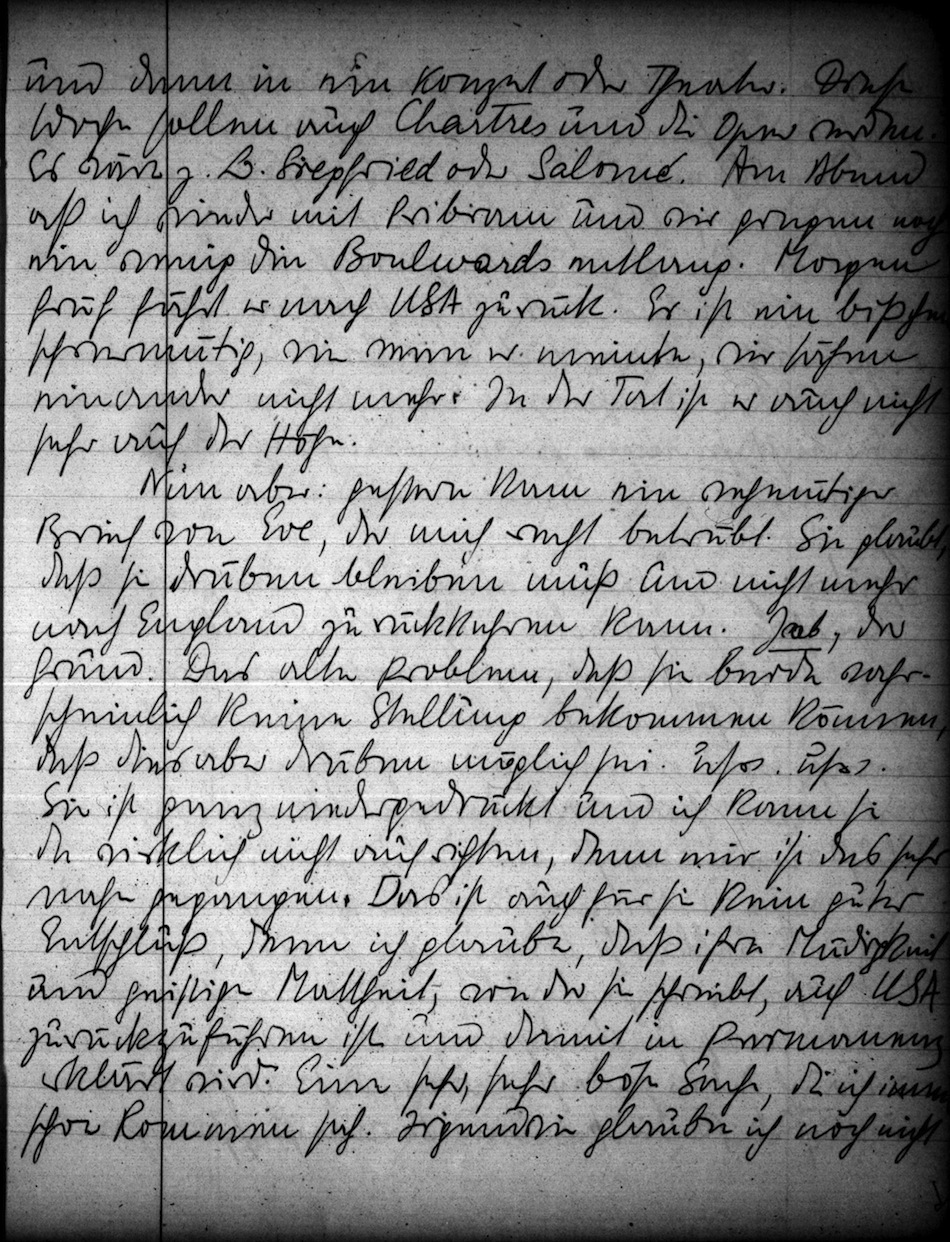 und dann in ein Konzert oder Theater. Diese
Woche sollen auch Chartres und die Oper werden.
Es wäre z. B. Siegfried oder Salome. Am Abend
aß ich wieder mit Pribram und wir gingen noch
ein wenig die Boulevards entlang. Morgen
früh fährt er nach USA zurück. Er ist ein bißchen
schwermütig, wie wenn er meinte, wir sähen
einander nicht mehr. In der Tat ist er auch nicht
sehr auf der Höhe.
Nun aber: gestern kam ein wehmütiger
Brief von Eve, der mich recht betrübt. Sie glaubt,
daß sie drüben bleiben muß und nicht mehr
nach England zurückkehren kann. Job, der
Grund. Das alte Problem, daß sie beide wahr-
scheinlich keine Stellung bekommen können,
daß dies aber drüben möglich sei. usw. usw.
Sie ist ganz niedergedrückt und ich kann sie
da wirklich nicht aufrichten, denn mir ist das sehr
nahe gegangen. Das ist auch für sie kein guter
Entschluß, denn ich glaube, daß ihre Müdigkeit
und geistige Mattheit, von der sie schreibt, auf USA
zurückzuführen ist und damit in Permanenz
erklärt wird. Eine sehr, sehr böse Sache, die ich immer
schon kommen sah. Irgendwie glaube ich noch nicht